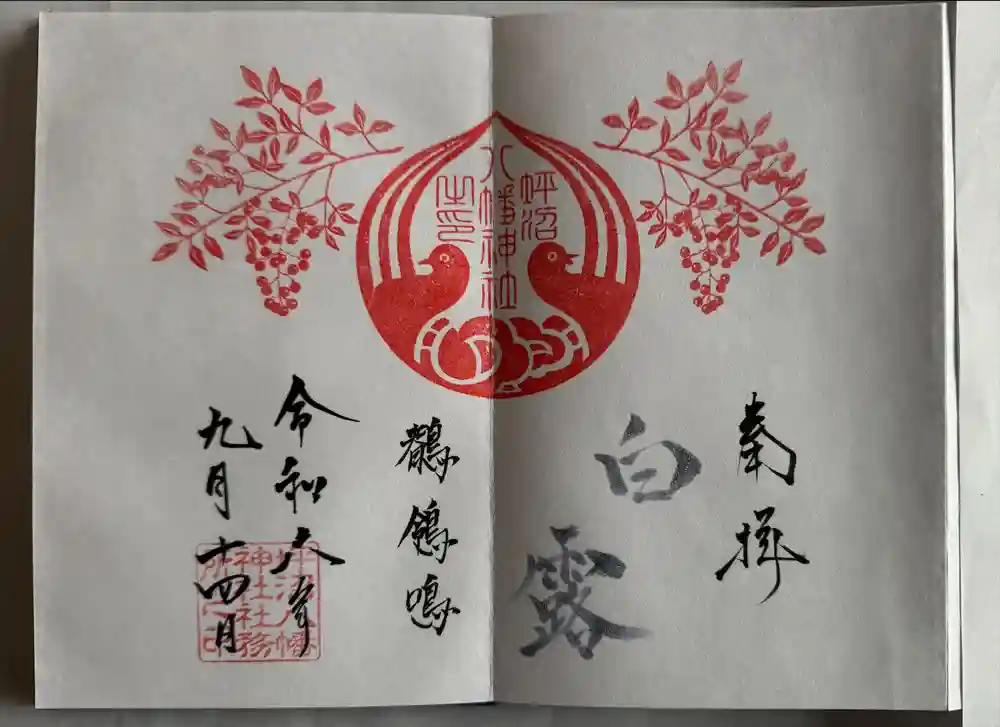 奉拝
白露
鶺鴒鳴
令和六年
九月十四日
坪沼
八幡神社
之印
坪沼八幡
神社社務
所之印